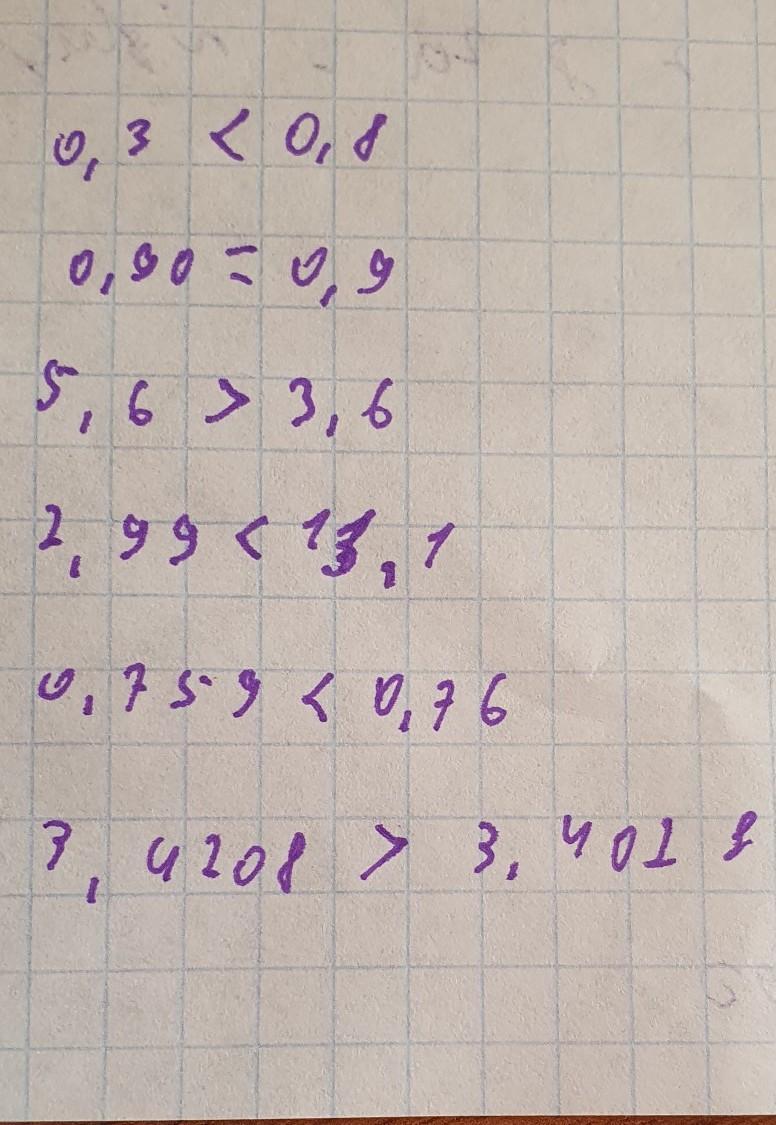 0,3 < 0,8
0,90 = 0,9
5,6 > 3,6
2,99 < 11,1
0,759 < 0,76
3,4208 > 3,4028